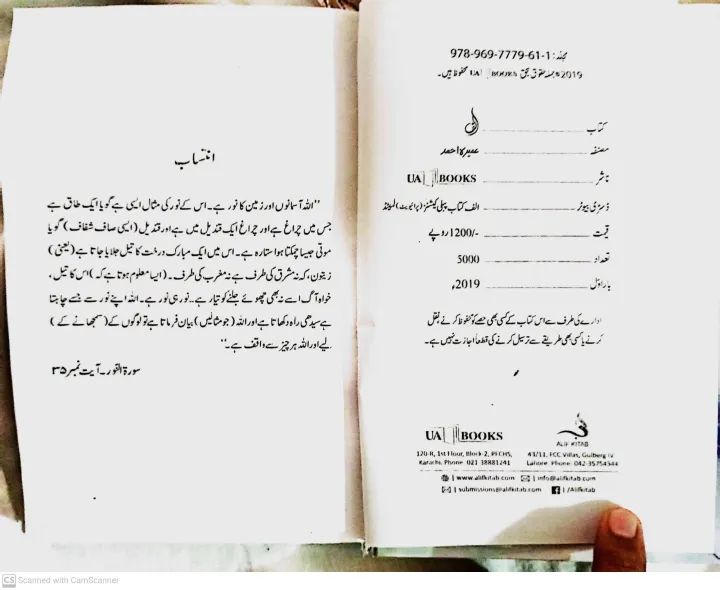 مجلد: 978-969-7779-61-1
©2019 جملہ حقوق بحق UA BOOKS محفوظ ہیں۔
کتاب
مصنفہ عمیرہ احمد
ناشر UA BOOKS
ڈسٹری بیوٹر الف کتاب پبلی کیشنز (پرائیویٹ) لمیٹڈ
قیمت 1200/- روپے
تعداد 5000
بار اوّل 2019ء
ادارے کی طرف سے اس کتاب کے کسی بھی حصے کو محفوظ کرنے، نقل
کرنے یا کسی بھی طریقے سے ترسیل کرنے کی قطعاً اجازت نہیں ہے۔
UA BOOKS
120-R, 1st Floor, Block-2, PECHS,
Karachi. Phone: 021 38881241
ALIF KITAB
43/11, FCC Villas, Gulberg IV
Lahore. Phone: 042-35754544
www.alifkitab.com info@alifkitab.com
submissions@alifkitab.com /Alifkitab
انتساب
”اللہ آسمانوں اور زمین کا نور ہے۔ اس کے نور کی مثال ایسی ہے گویا ایک طاق ہے
جس میں چراغ ہے اور چراغ ایک قندیل میں ہے اور قندیل (ایسی صاف شفاف) گویا
موتی جیسا چمکتا ہوا ستارہ ہے۔ اس میں ایک مبارک درخت کا تیل جلایا جاتا ہے (یعنی)
زیتون، کہ نہ مشرق کی طرف ہے نہ مغرب کی طرف۔ (ایسا معلوم ہوتا ہے کہ) اس کا تیل،
خواہ آگ اسے نہ بھی چھوئے جلنے کو تیار ہے۔ نور ہی نور ہے۔ اللہ اپنے نور سے جسے چاہتا
ہے سیدھی راہ دکھاتا ہے اور اللہ (جو مثالیں) بیان فرماتا ہے تو لوگوں کے (سمجھانے کے)
لیے اور اللہ ہر چیز سے واقف ہے۔“
سورۃ النور۔ آیت نمبر ۳۵
CS Scanned with CamScanner